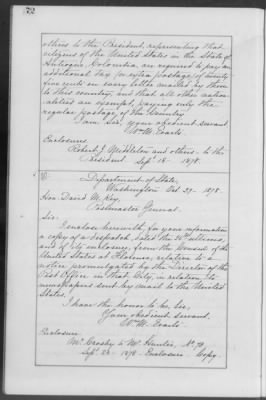 72
others to the President, representing that
citizens of the United States in the State of
Antioquia, Colombia, are required to pay an
additional tax for extra postage, of twenty
five cents on every letter mailed by them
to this country, and that all other nation-
alities are exempt, paying only the
regular postage, of the Country.
I am, Sir, Your obedient servant
Wm M. Evarts.
Enclosure
Robert J. Middleton and others to the
President Sept 18 1878.
Department of State,
Washington Oct 29 1878.
Hon David M. Key,
Postmaster General.
Sir:
I enclose herewith, for your information
a copy of a despatch, dated the 28th ultimo,
and of its enclosure, from the Consul of the
United States at Florence, relative to a
notice promulgated by the Director of the
Post Office in that City, in relation to
newspapers sent by mail to the United
States.
I have the honor to be, Sir,
Your obedient servant.
Wm M. Evarts
Enclosure
Mr Crosby to Mr Hunter, No 70,
Sept 28 1878 Enclosure Copy.